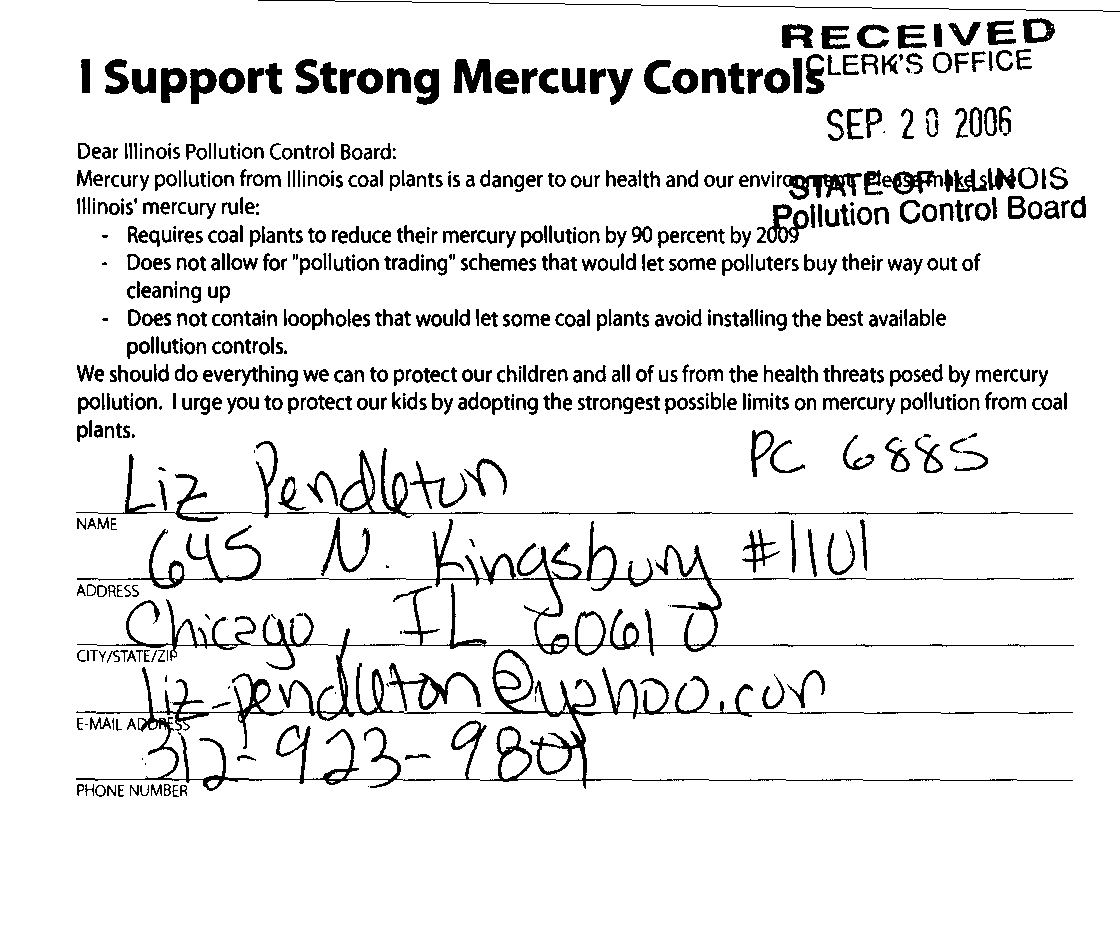 RECEIVED
CLERK'S OFFICE
I Support Strong Mercury Controls
SEP 20 2006
Dear Illinois Pollution Control Board:
Mercury pollution from Illinois coal plants is a danger to our health and our environment. Please make sure
STATE OF ILLINOIS
Illinois' mercury rule:
Pollution Control Board
- Requires coal plants to reduce their mercury pollution by 90 percent by 2009
- Does not allow for "pollution trading" schemes that would let some polluters buy their way out of
cleaning up
- Does not contain loopholes that would let some coal plants avoid installing the best available
pollution controls.
We should do everything we can to protect our children and all of us from the health threats posed by mercury
pollution. I urge you to protect our kids by adopting the strongest possible limits on mercury pollution from coal
plants.
PC 6885
Liz Pendleton
NAME
645 N. Kingsbury #1101
ADDRESS
Chicago, IL 60610
CITY/STATE/ZIP
liz-pendleton@yahoo.com
E-MAIL ADDRESS
312-923-9801
PHONE NUMBER